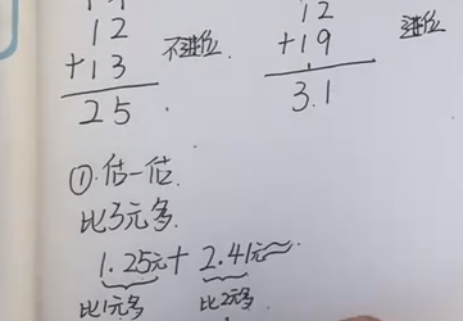 12
+13
25
不进位.
12
+19
3.1
进位
①估一估.
比3元多.
1.25元+2.41元≈
比1元多 比2元多